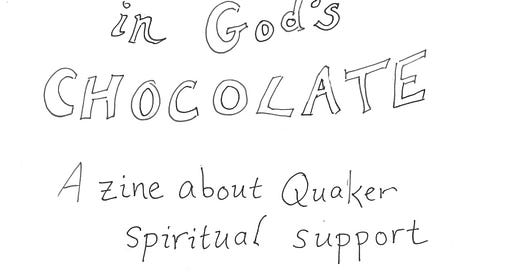 in God's
CHOCOLATE
A zine about Quaker
spiritual support